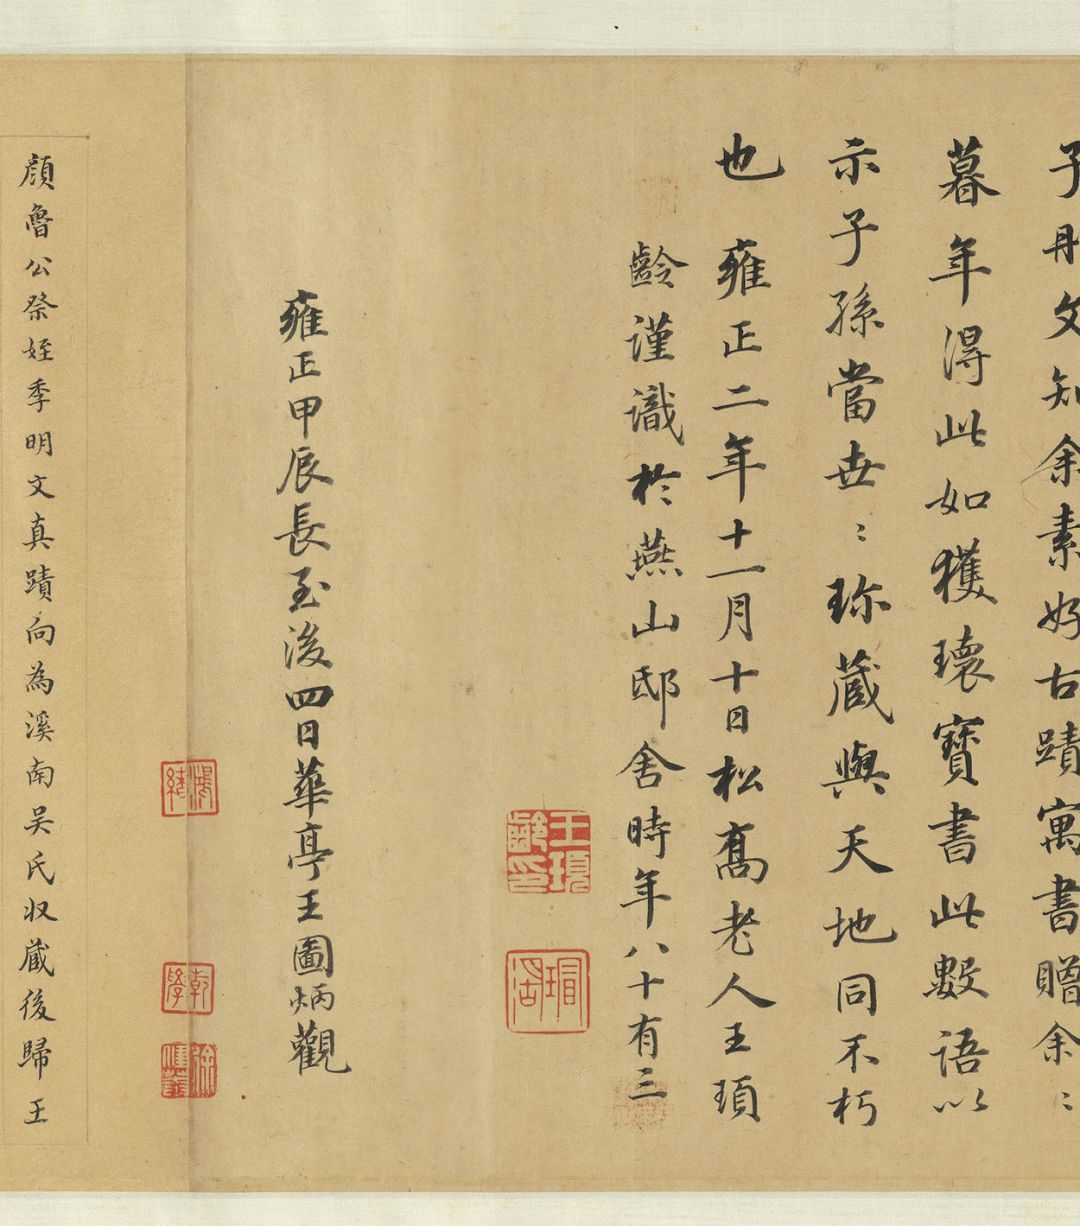 子用文知余素好古蹟寓書贈余〻
暮年得此如獲瓌寶書此數語以
示子孫當世〻珎藏與天地同不朽
也 雍正二年十一月十日松高老人王頊
齡謹識於燕山邸舍時年八十有三
王頊齡印
瑁湖
雍正甲辰長至後四日華亭王圖炳觀
鴻緒
乾學
顏魯公祭姪季明文真蹟向為溪南吳氏收藏後歸王